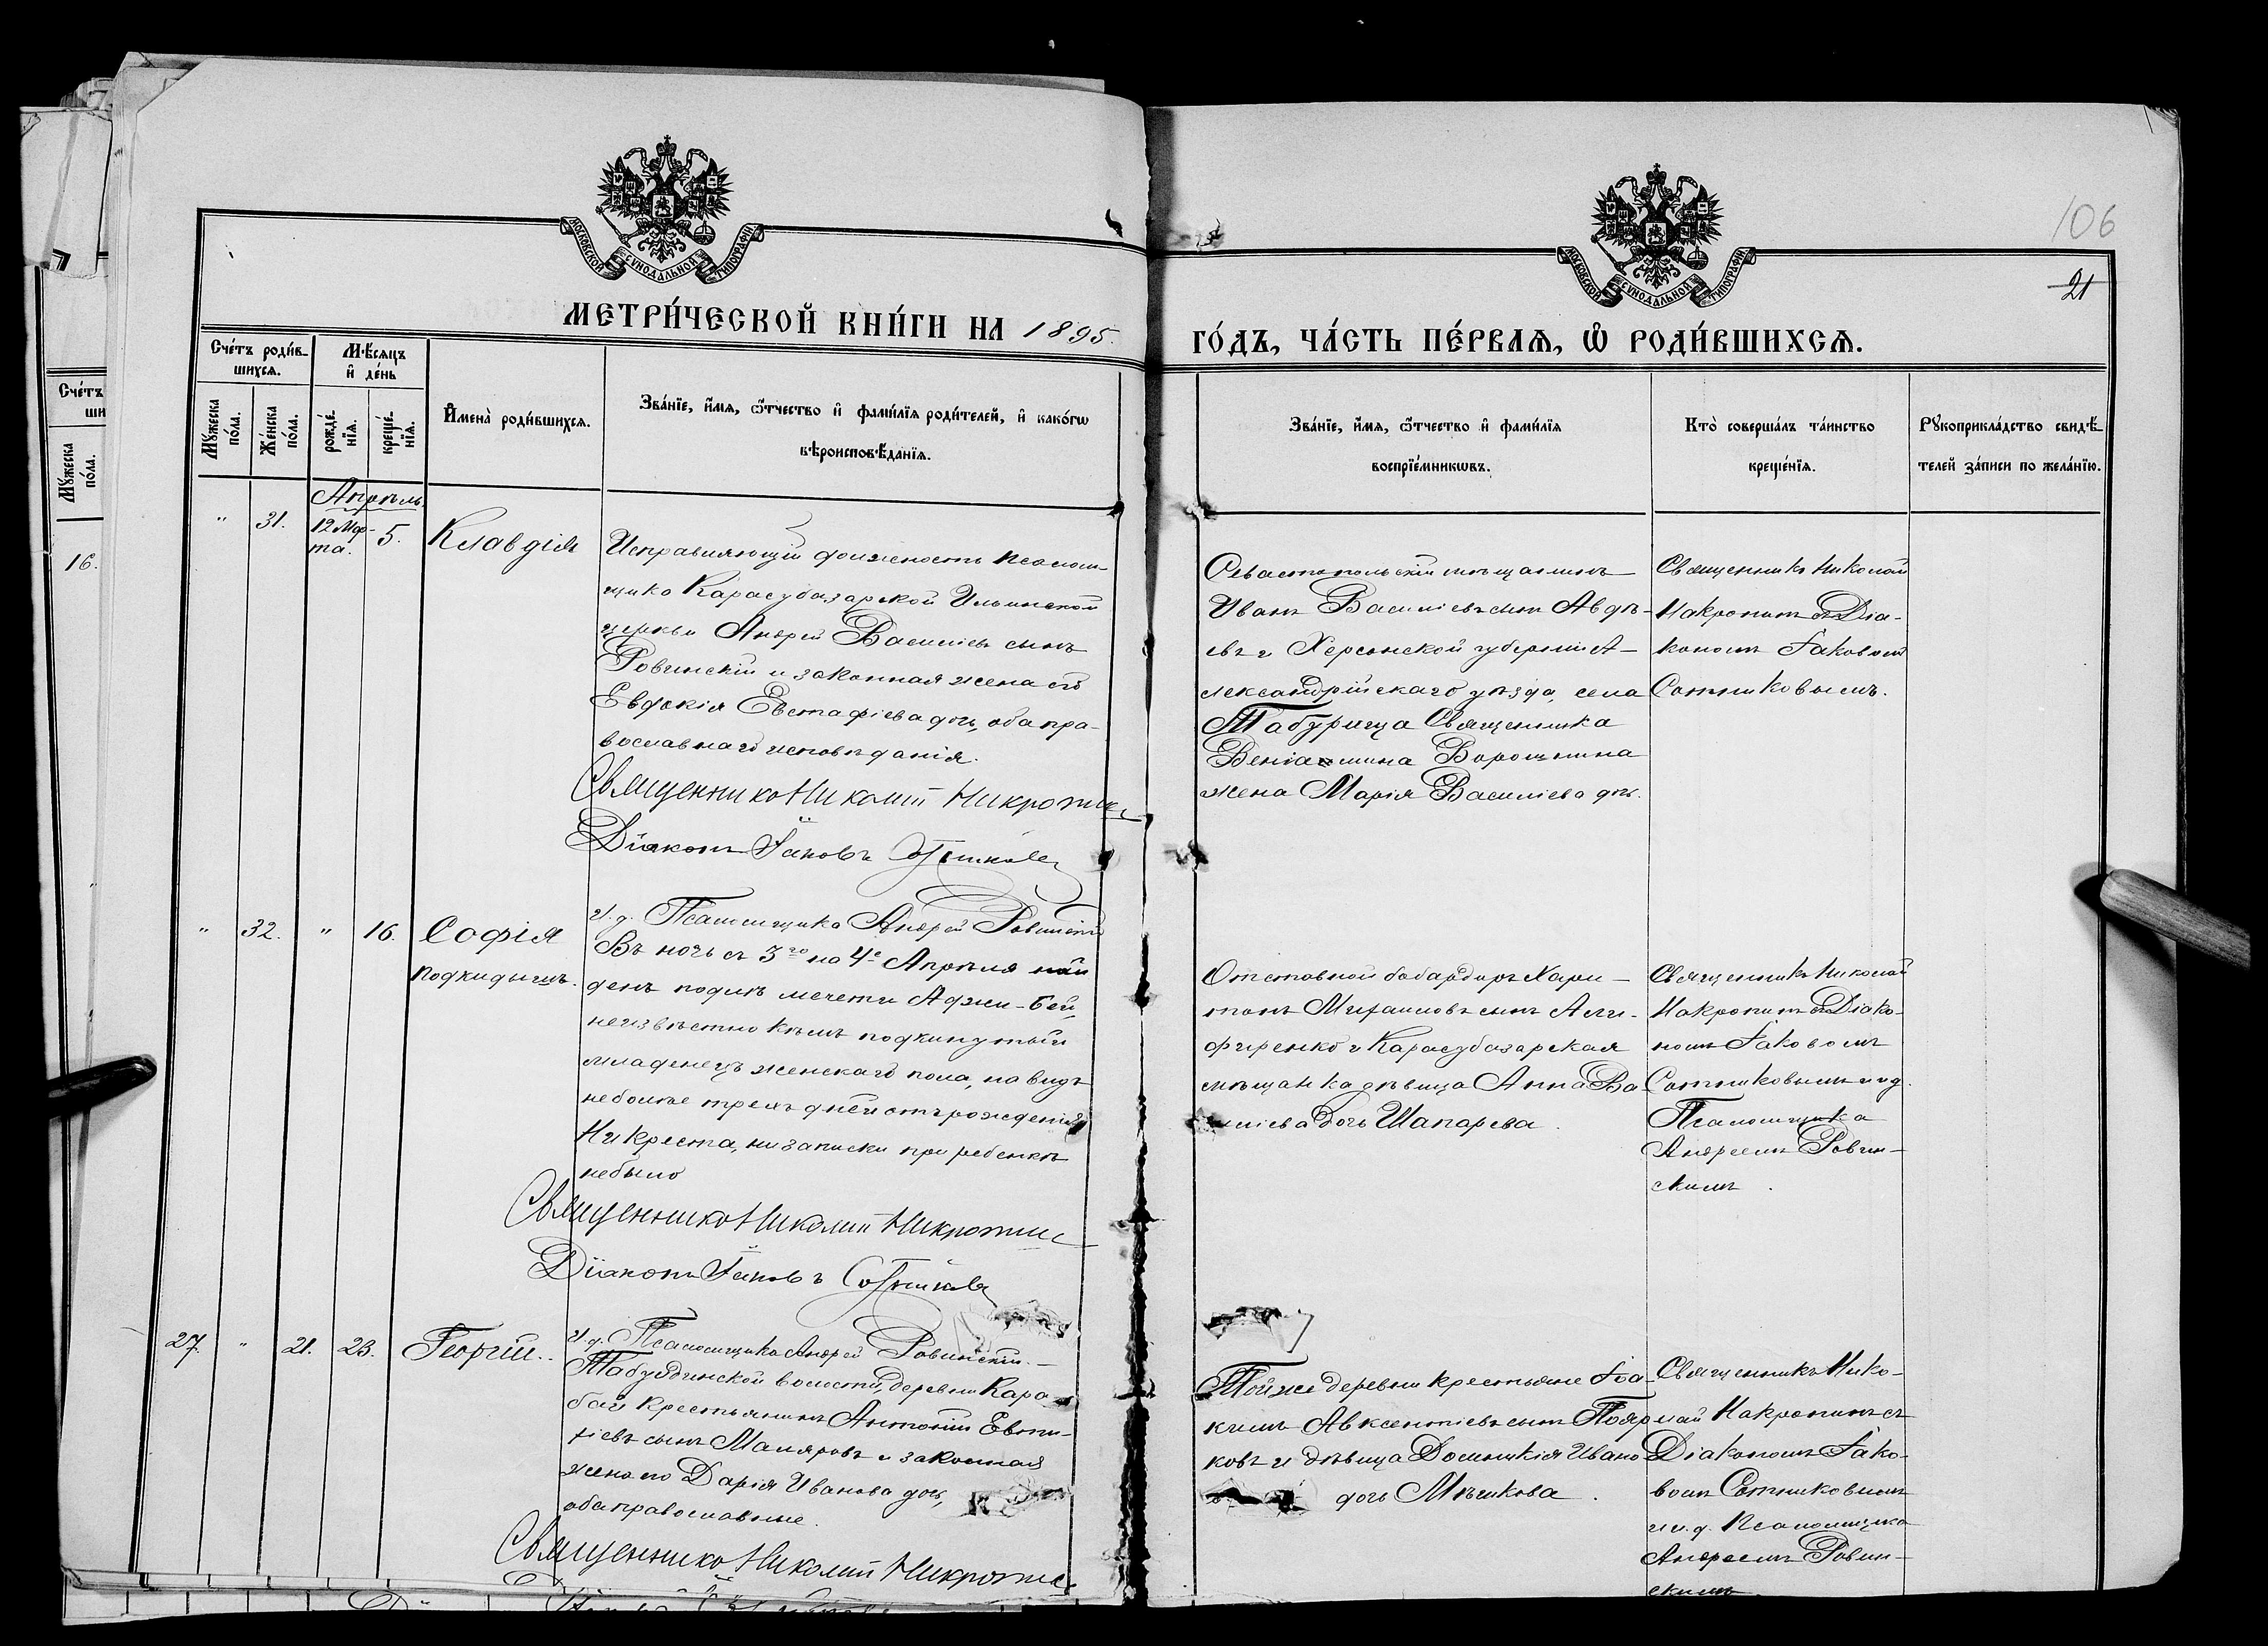 106
21
МОСКОВСКОЙ СУНОДАЛЬНОЙ ТИПОГРАФІИ
МОСКОВСКОЙ СУНОДАЛЬНОЙ ТИПОГРАФІИ
МЕТРИ́ЧЕСКОЙ КНИ́ГИ НА 1895.
ГО́ДЪ, ЧА́СТЬ ПЕ́РВАѦ, Ѡ РОДИ́ВШИХСѦ.
Сче́тъ роди́в-
шихсѧ.
Мѣ́сѧцъ
и҆ де́нь
Мꙋ́жеска по́ла.
Же́нска по́ла.
рожде́-нїѧ.
креще́-нїѧ.
И҆мена̀ роди́вшихсѧ.
Зва́нїе, и҆́мѧ, ѻ҆́тчество и҆ фами́лїѧ роди́телей, и҆ како́гѡ
вѣроисповѣ́данїѧ.
Зва́нїе, и҆́мѧ, ѻ҆́тчество и҆ фами́лїѧ
воспрїе́мникѡвъ.
Кто̀ соверша́лъ та́инство
креще́нїѧ.
Рꙋкоприкла́дство свидѣ́-
телей за́писи по жела́нїю.
Сче́тъ
ши
Мꙋ́жеска по́ла.
16.
Апрѣль.
" 31. 12 Мар-
та. 5. Клавдія
Исправляющій должность псалом-
щика Карасубазарской Ильинской
церкви Андрей Василіевъ сынъ
Ровинскій и законная жена его
Евдокія Евстафіева дочь, оба пра-
вославнаго исповѣданія.
Священникъ Николай Макропиті
Діаконъ Іаковъ Сотниковъ
Севастопольскій мѣщанинъ
Иванъ Василіевъ сынъ Авдѣ-
евъ и Херсонской губерніи А-
лександрійскаго уѣзда, села
Табурища Священника
Веніамина Ворошнина
жена Марія Василіева дочь.
Священникъ Николай
Макропити съ Діа-
кономъ Іаковомъ
Сотниковымъ.
" 32. " 16. Софія
подкидышъ.
И. д. Псаломщика Андрей Ровинскій
Въ ночь съ 3го на 4е Апрѣля най
денъ подлѣ мечети Аджи-Бей,
неизвѣстно кѣмъ подкинутый
младенецъ женскаго пола, на видъ
неболѣе трехъ дней отъ рожденія
Ни креста, ни записки при ребенкѣ
небыло
Священникъ Николай Макропиті
Діаконъ Іаковъ Сотниковъ
Отставной бобардиръ Хари-
тонъ Михаиловъ сынъ
и Карасубазарская
мѣщанка дѣвица Анна Ва-
силіева дочь Шапарева.
Священникъ Николай
Макропити съ Діако-
номъ Іаковомъ
Сотниковымъ и и д.
Псаломщика
Андреемъ Ровин-
скимъ.
27. " 21. 23. Георгій.
И. д. Псаломщика Андрей Ровинскій.
Табулдинской волости, деревни Кара-
бай крестьянинъ Антоній Евти-
хіевъ сынъ Маляровъ и законная
жена его Дарія Иванова дочь,
оба православные.
Священникъ Николай Макропиті
Той же деревни крестьяне Іоа-
кимъ Авксентіевъ сынъ Пояр
ковъ и дѣвица Домникія Ивано
дочь Мѣшкова.
Священникъ Нико-
лай Макропити съ
Діакономъ Іако-
вомъ Сотниковымъ
и и. д. Псаломщика
Андреемъ Ровин-
скимъ.